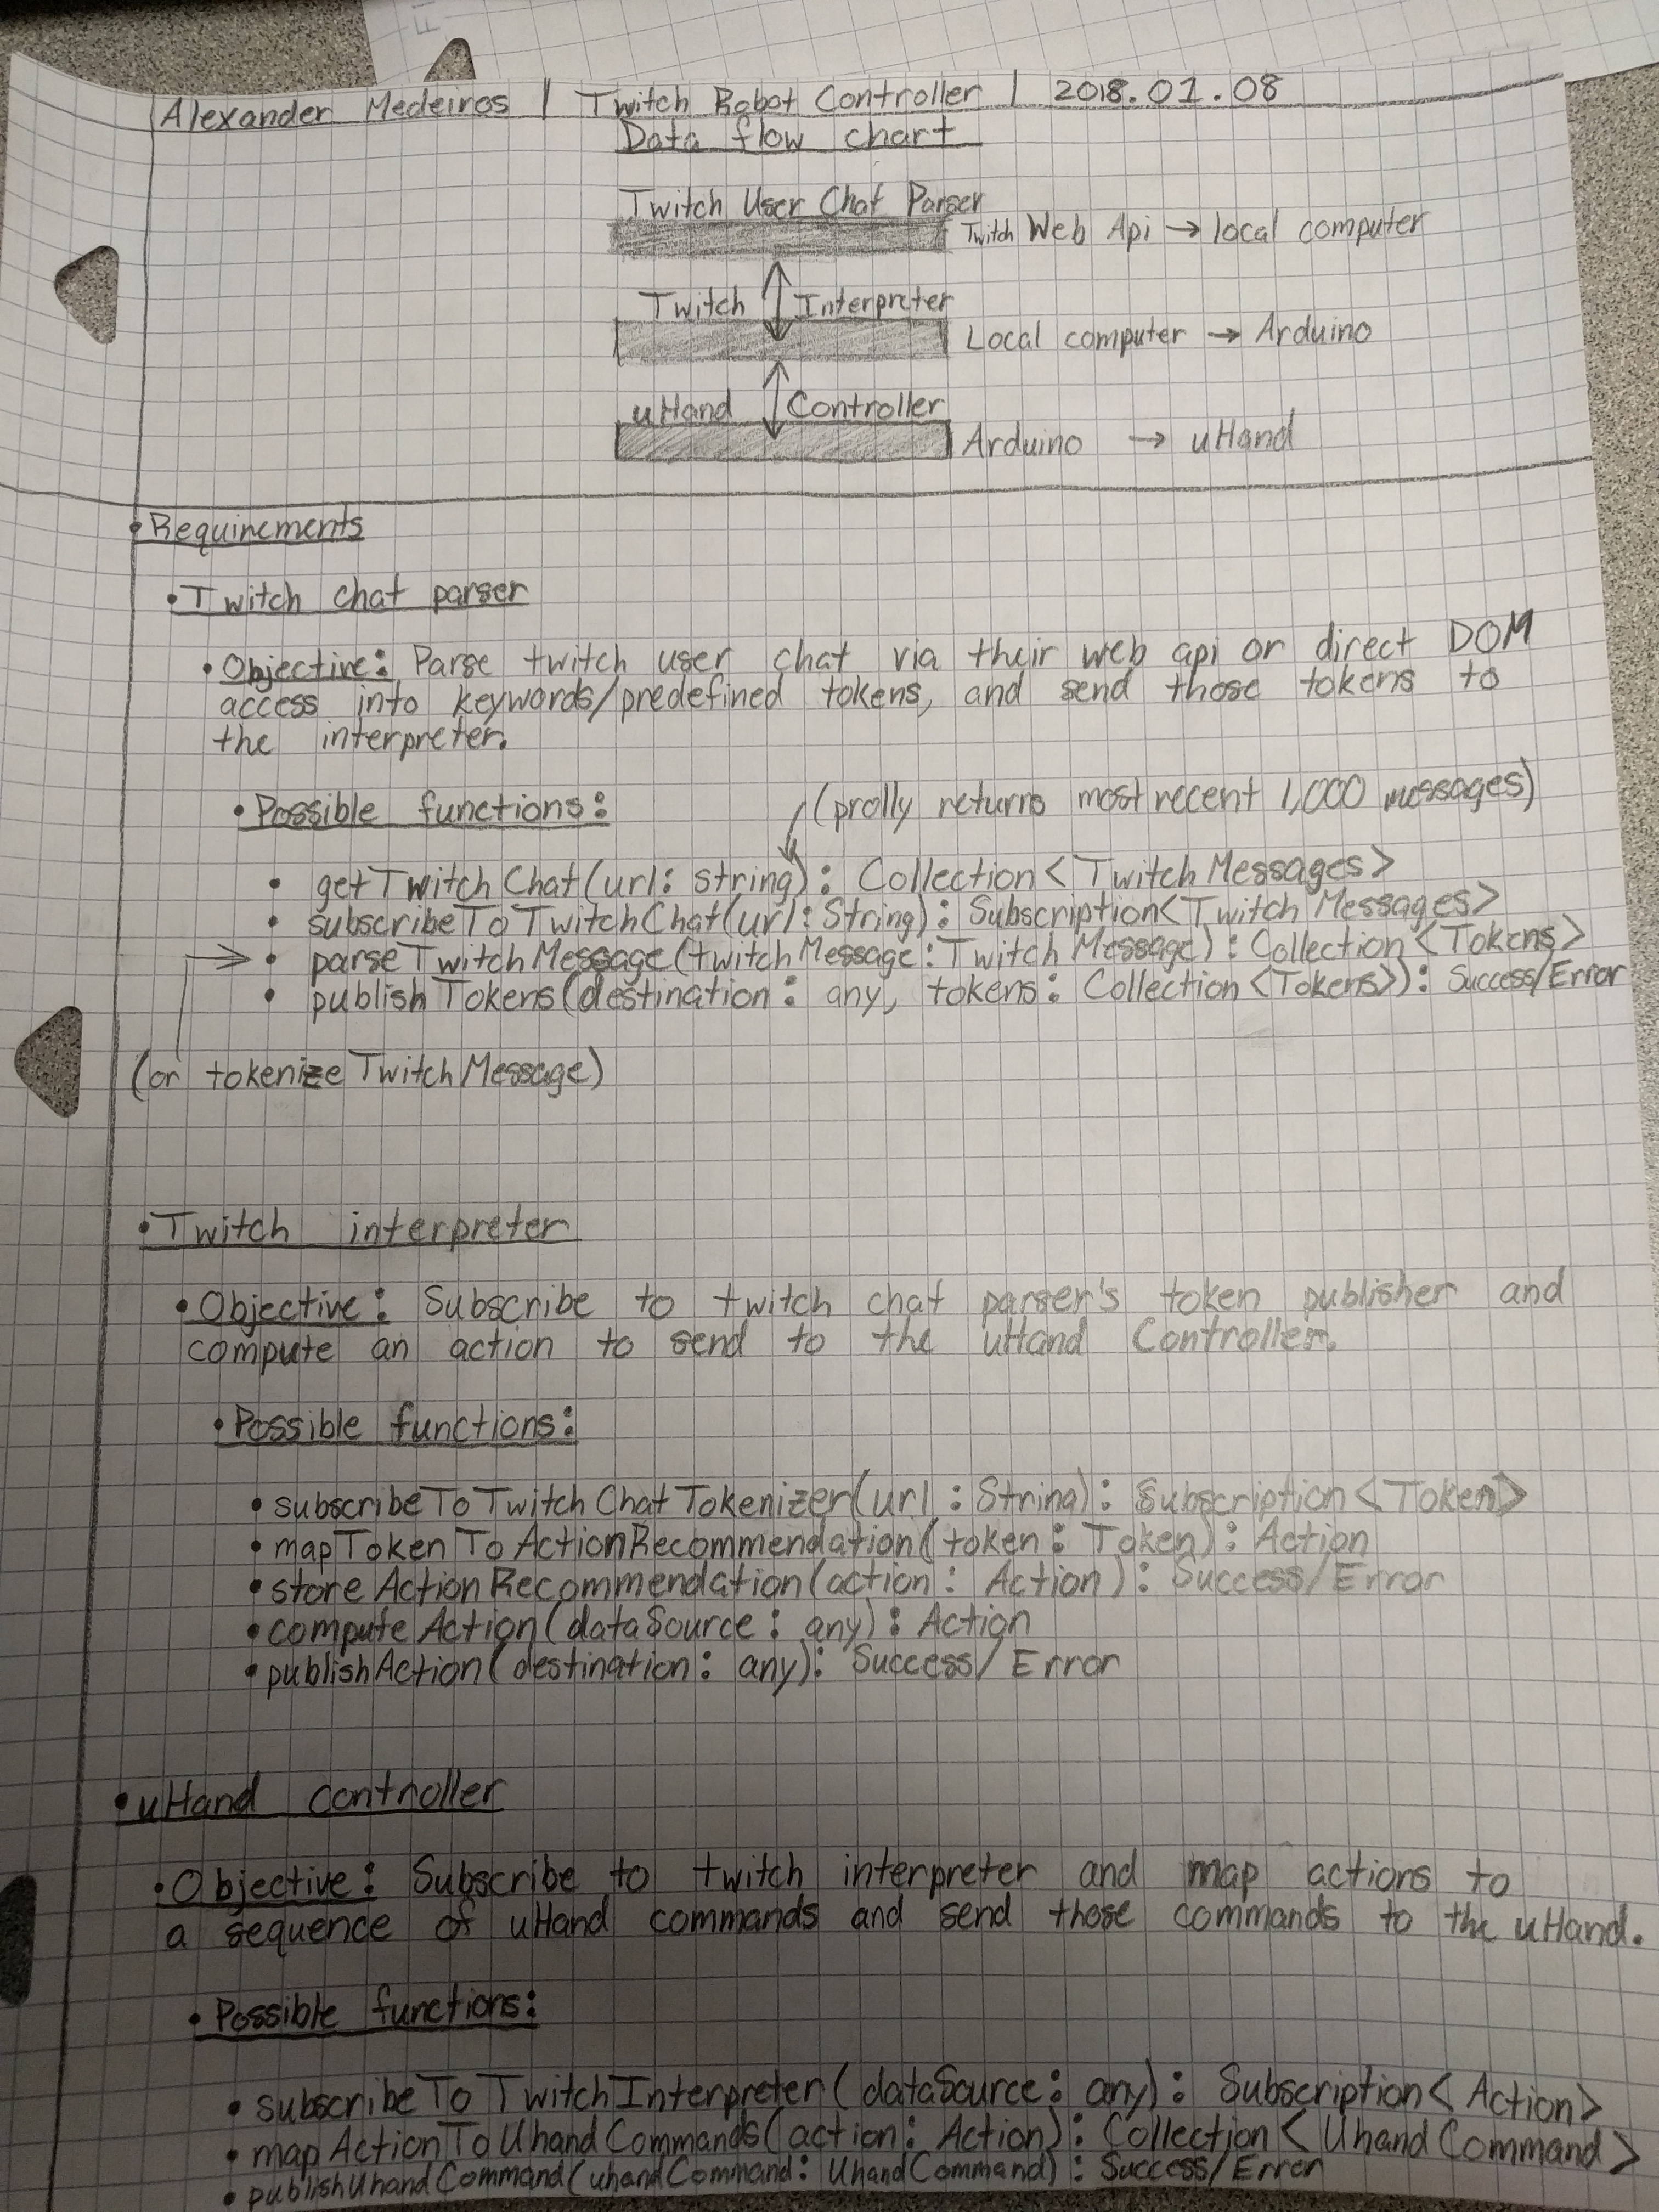 Alexander Medeiros | Twitch Robot Controller | 2018.01.08
Data flow chart
Twitch User Chat Parser
Twitch Web Api → local computer
Twitch Interpreter
Local computer → Arduino
uHand Controller
Arduino → uHand
• Requirements
• Twitch chat parser
• Objective: Parse twitch user chat via their web api or direct DOM
access into keywords/predefined tokens, and send those tokens to
the interpreter.
• Possible functions:
(prolly returns most recent 1,000 messages)
• getTwitchChat(url: string): Collection<TwitchMessages>
• subscribeToTwitchChat(url: String): Subscription<TwitchMessages>
• parseTwitchMessage(twitchMessage: TwitchMessage): Collection<Tokens>
• publishTokens(destination: any, tokens: Collection<Tokens>): Success/Error
(or tokenizeTwitchMessage)
• Twitch interpreter
• Objective: Subscribe to twitch chat parser's token publisher and
compute an action to send to the uHand Controller.
• Possible functions:
• subscribeToTwitchChatTokenizer(url: String): Subscription<Token>
• mapTokenToActionRecommendation(token: Token): Action
• storeActionRecommendation(action: Action): Success/Error
• computeAction(dataSource: any): Action
• publishAction(destination: any): Success/Error
• uHand controller
• Objective: Subscribe to twitch interpreter and map actions to
a sequence of uHand commands and send those commands to the uHand.
• Possible functions:
• subscribeToTwitchInterpreter(dataSource: any): Subscription<Action>
• mapActionToUhandCommands(action: Action): Collection<UhandCommand>
• publishUhandCommand(uhandCommand: UhandCommand): Success/Error